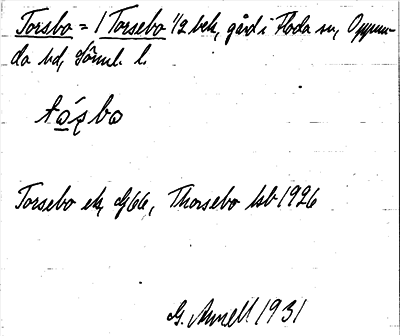 Torsbo = 1 Torsebo 1/2 bek, gård i Floda sn, Oppun-
da hd, Söml. l.
tóşbo
Torsebo ek, Gf 66, Thorsebo lsb 1926
G. Annell 1931